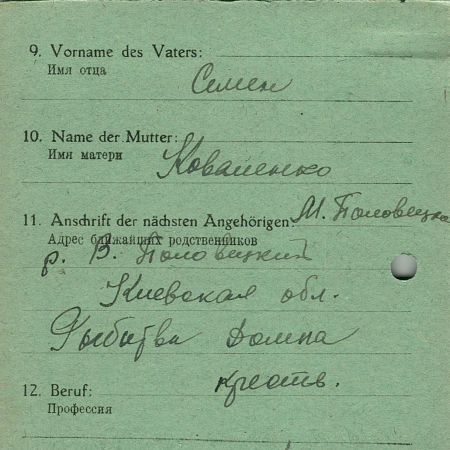 9. Vorname des Vaters:
Имя отца
Семен
10. Name der Mutter:
Имя матери
Коваленко
11. Anschrift der nächsten Angehörigen:
М. Половецка
Адрес ближайших родственников
р. В. Половецкий
Киевская обл.
Домна
12. Beruf:
креств.
Профессия